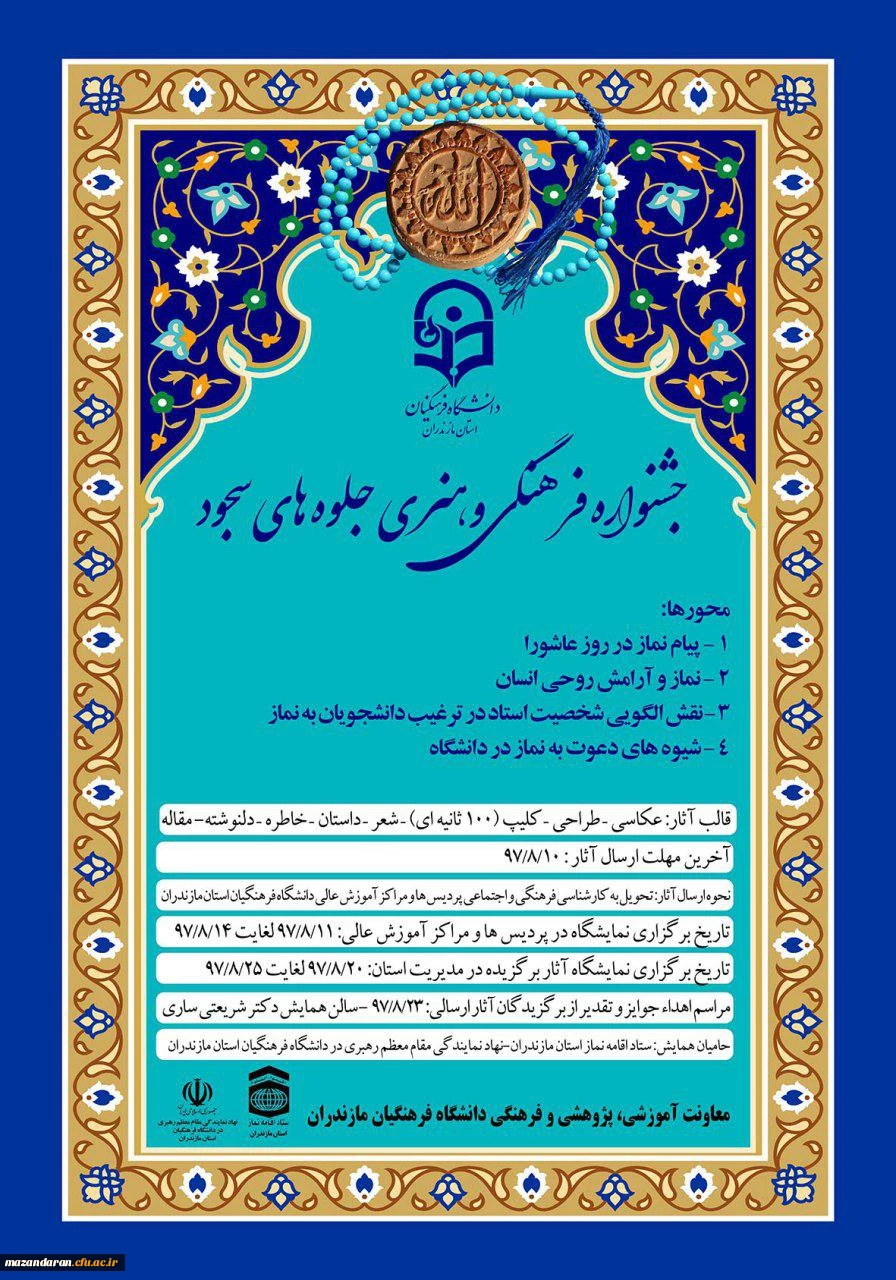 الله
دانشگاه فرهنگیان
استان مازندران
جشنواره فرهنگی و هنری جلوه های سجود
محورها:
۱ - پیام نماز در روز عاشورا
۲ - نماز و آرامش روحی انسان
۳- نقش الگویی شخصیت استاد در ترغیب دانشجویان به نماز
۴ - شیوه های دعوت به نماز در دانشگاه
قالب آثار: عکاسی - طراحی - کلیپ (۱۰۰ ثانیه ای) - شعر - داستان - خاطره - دلنوشته - مقاله
آخرین مهلت ارسال آثار : ۹۷/۸/۱۰
نحوه ارسال آثار: تحویل به کارشناسی فرهنگی و اجتماعی پردیس ها و مراکز آموزش عالی دانشگاه فرهنگیان استان مازندران
تاریخ برگزاری نمایشگاه در پردیس ها و مراکز آموزش عالی: ۹۷/۸/۱۱ لغایت ۹۷/۸/۱۴
تاریخ برگزاری نمایشگاه آثار برگزیده در مدیریت استان: ۹۷/۸/۲۰ لغایت ۹۷/۸/۲۵
مراسم اهداء جوایز و تقدیر از برگزیدگان آثار ارسالی: ۹۷/۸/۲۳ - سالن همایش دکتر شریعتی ساری
حامیان همایش: ستاد اقامه نماز استان مازندران-نهاد نمایندگی مقام معظم رهبری در دانشگاه فرهنگیان استان مازندران
معاونت آموزشی، پژوهشی و فرهنگی دانشگاه فرهنگیان مازندران
ستاد اقامه نماز
استان مازندران
جمهوری اسلامی ایران
نهاد نمایندگی مقام معظم رهبری
در دانشگاه فرهنگیان
استان مازندران
mazandaran.cfu.ac.ir